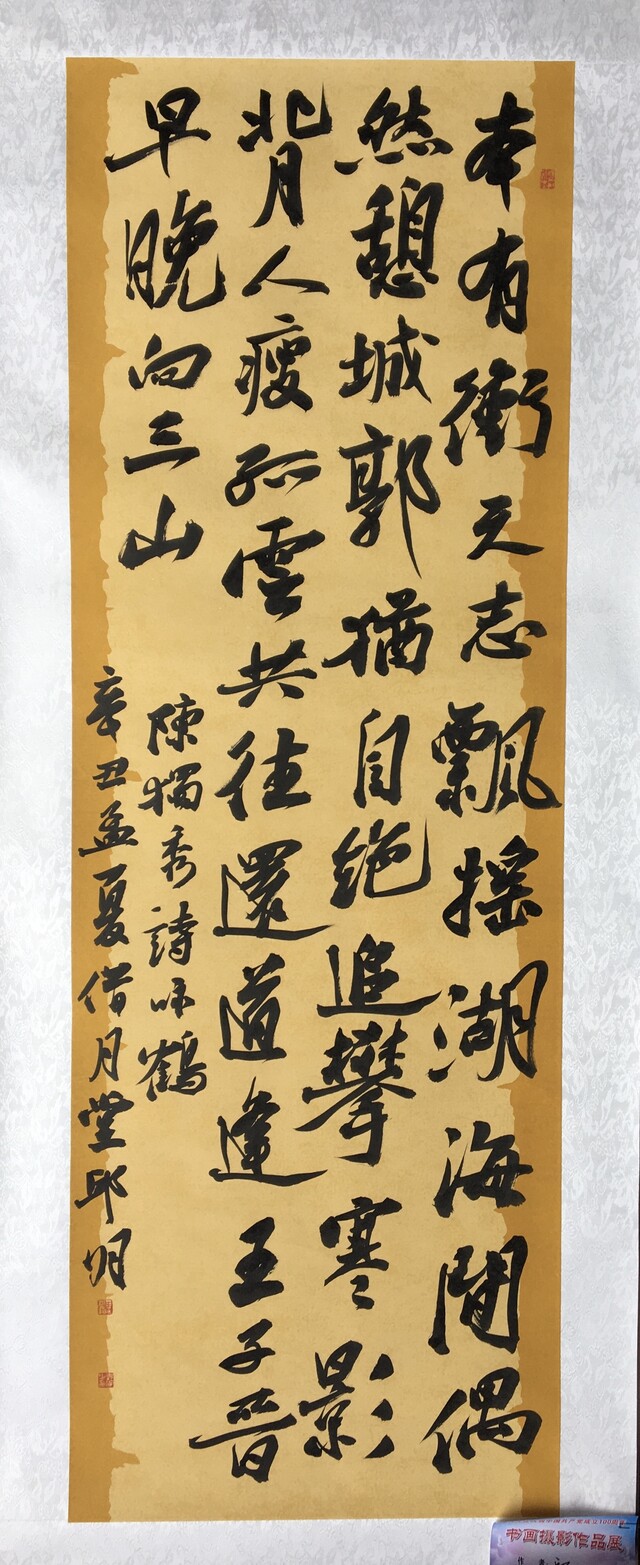 本有衝天志飄摇湖海間偶
然憩城郭猶自绝追攀寒影
背月人瘦孤雲共往還道逢王子晉
早晚向三山
陳獨秀詩咏鶴
辛丑孟夏借月堂邱明
成立100周年
书画摄影作品展